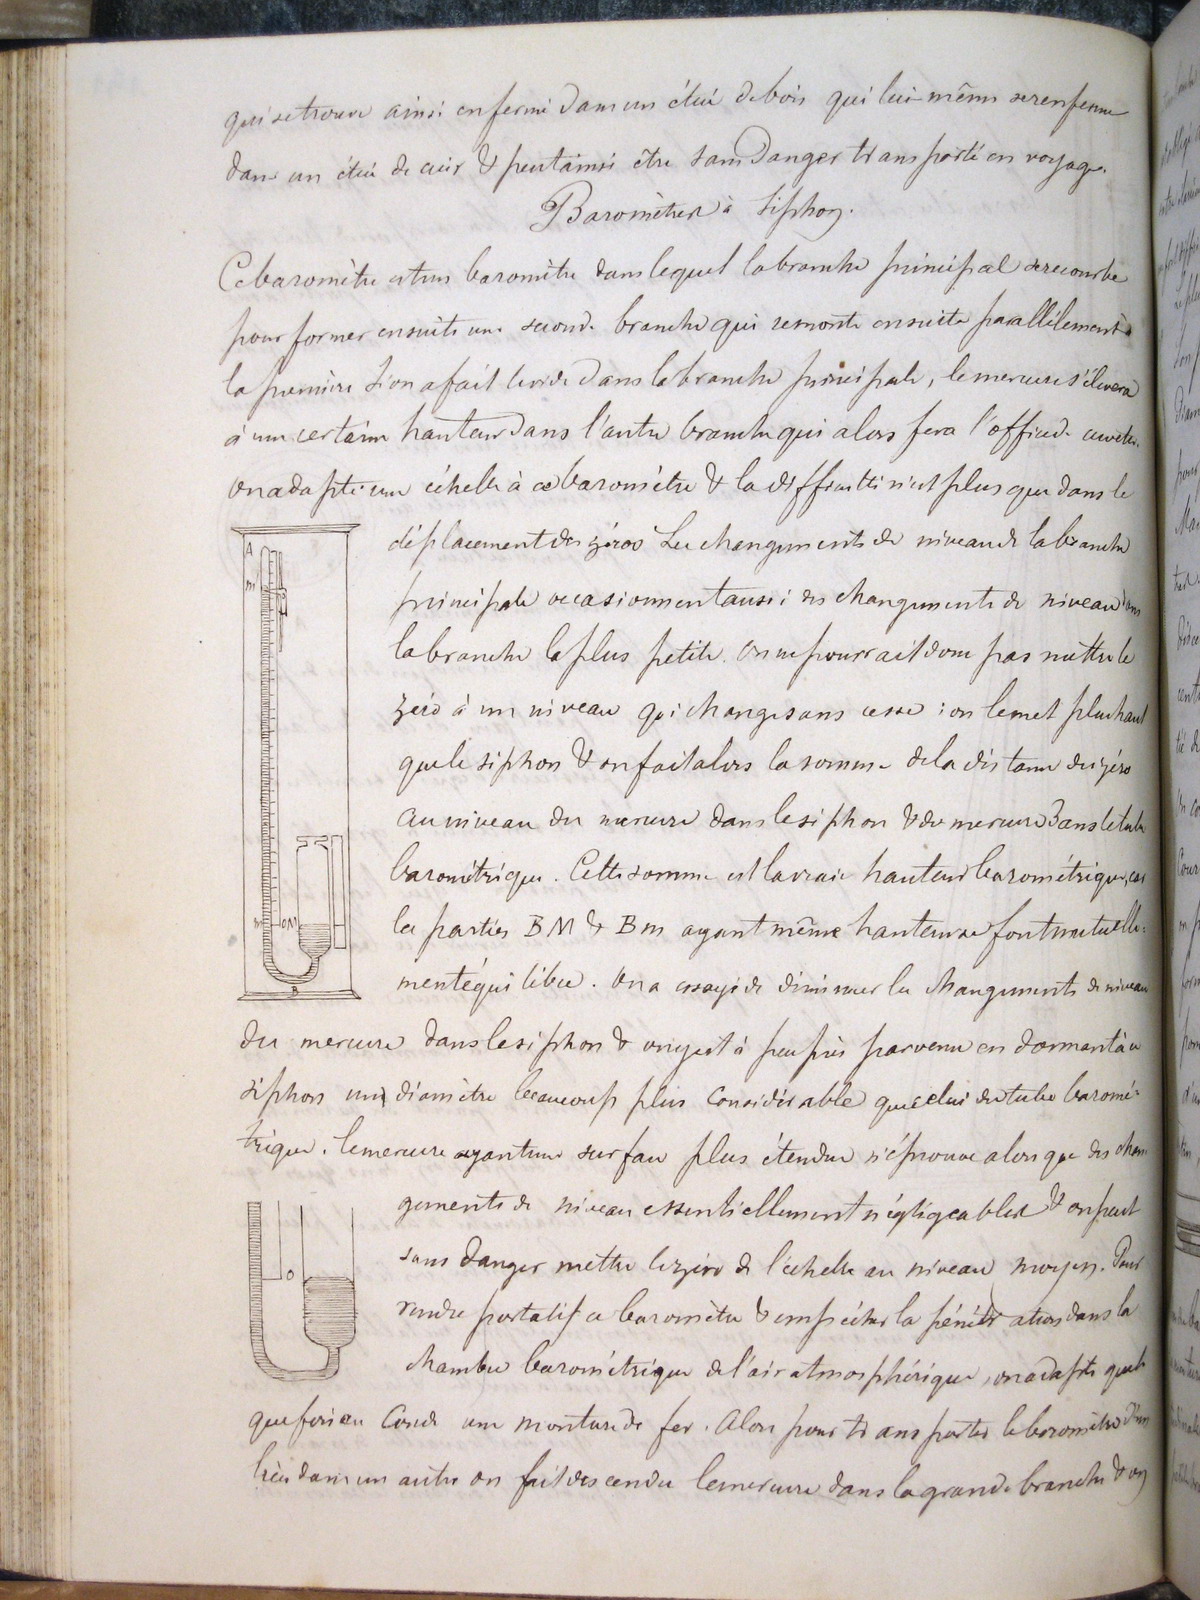 qui se trouve ainsi enfermé dans un étui de bois qui lui-même se renferme
dans un étui de cuir & peut ainsi être sans danger transporté en voyage.
Baromètre à Siphon.
Ce baromètre est un baromètre dans lequel la branche principal se recourbe
pour former ensuite une seconde branche qui remonte ensuite parallèlement à
la première Si on a fait le vide dans la branche principale, le mercure s'élevera
à une certaine hauteur dans l'autre branche qui alors fera l'office de cuvette.
on adapte une échelle à ce baromètre & la difficulté n'est plus que dans le
déplacement des zéros Les changements de niveau de la branche
principale occasionnent aussi des changements de niveau dans
la branche la plus petite. On ne pourrait donc pas mettre le
zéro à un niveau qui change sans cesse : on le met plus haut
que le siphon & on fait alors la somme de la distance du zéro
au niveau du mercure dans le siphon & du mercure dans le tube
barométrique. Cette somme est la vraie hauteur barométrique, car
les parties BM & Bm ayant même hauteur se font mutuelle-
ment équilibre. On a essayé de diminuer les changements de niveau
du mercure dans le siphon & on y est à peu près parvenu en donnant au
siphon un diamètre beaucoup plus considérable que celui du tube baromé-
trique. le mercure ayant une surface plus étendue n'éprouve alors que des chan
gements de niveau essentiellement négligeables & on peut
sans danger mettre le zéro de l'échelle au niveau moyen. Pour
rendre portatif ce baromètre & empêcher la pénétration dans la
chambre barométrique de l'air atmosphérique, on adapte quel
quefois au coude une monture de fer. Alors pour transporter le baromètre d'un
lieu dans un autre on fait descendre le mercure dans la grande branche & on
A
m'
m
O
M
B
O